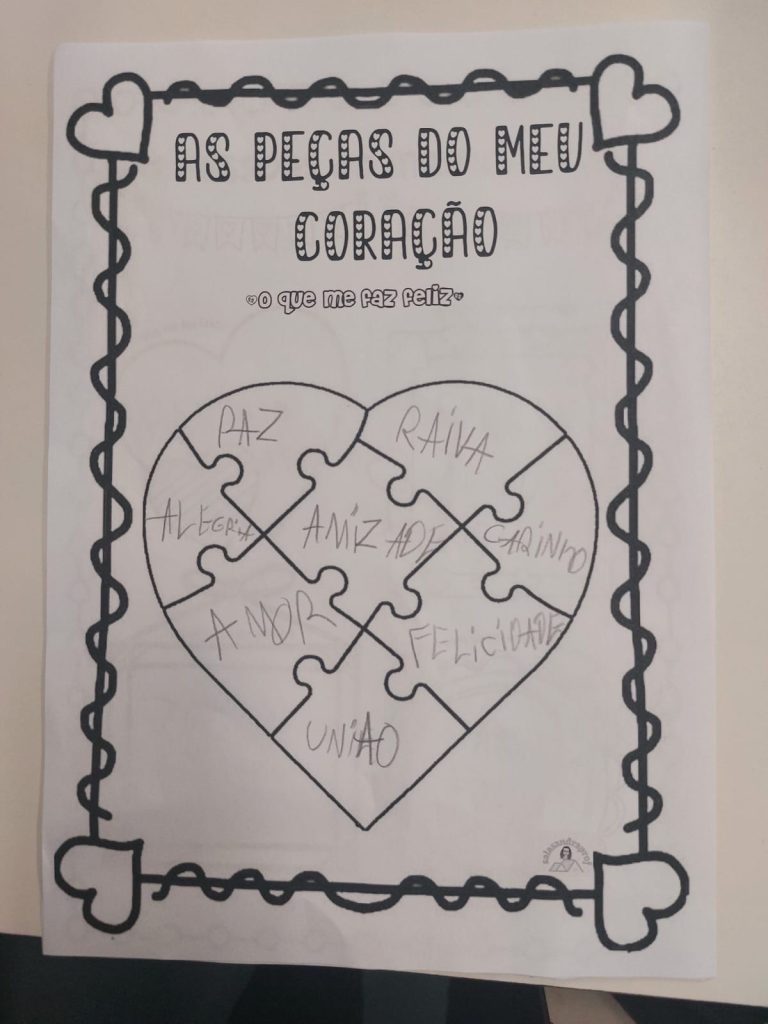 AS PEÇAS DO MEU
CORAÇÃO
O que me faz feliz
PAZ
RAIVA
ALEGRIA
AMIZADE
CARINHO
AMOR
FELICIDADE
UNIAO
salasandraprof